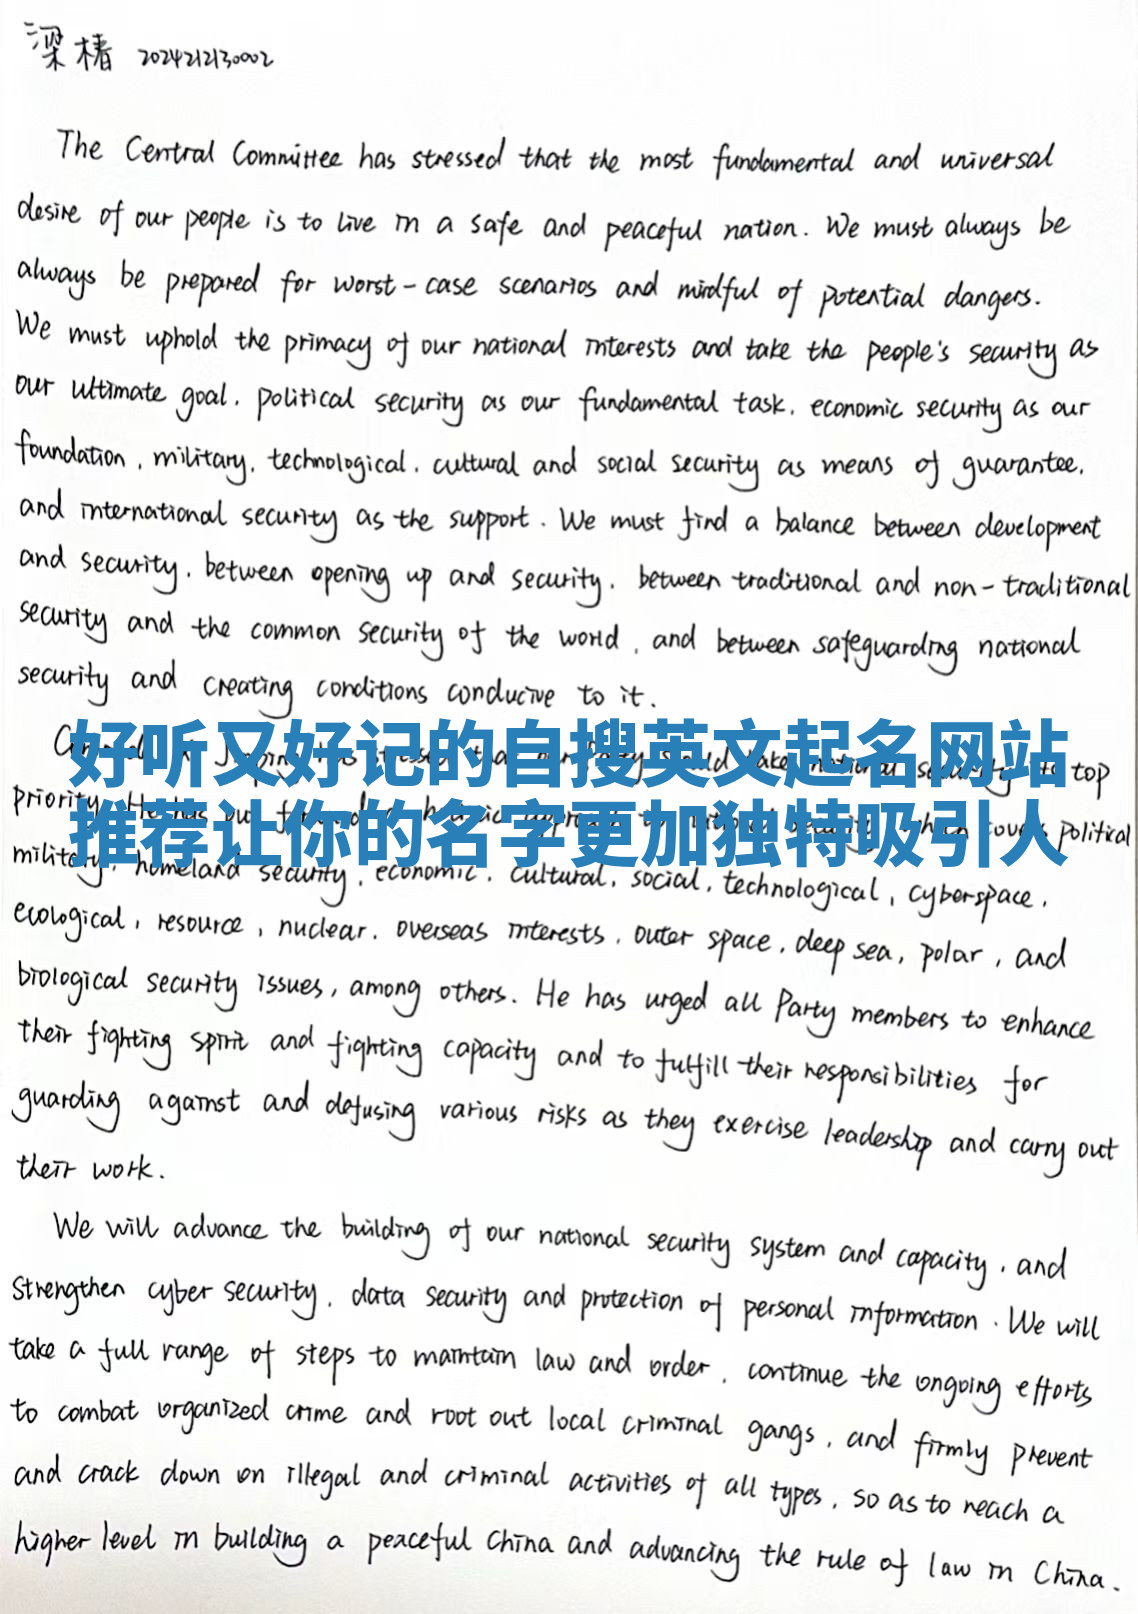 梁椿 2024212130002
The Central Committee has stressed that the most fundamental and universal
desire of our people is to live in a safe and peaceful nation. We must always be
always be prepared for worst-case scenarios and mindful of potential dangers.
We must uphold the primacy of our national interests and take the people's security as
our ultimate goal, political security as our fundamental task, economic security as our
foundation, military, technological, cultural and social security as means of guarantee,
and international security as the support. We must find a balance between development
and security, between opening up and security, between traditional and non-traditional
security and the common security of the world, and between safeguarding national
security and creating conditions conducive to it.
好听又好记的自搜英文起名网站
top
priority. He has
推荐让你的名字更加独特吸引人
political
military, homeland security, economic, cultural, social, technological, cyberspace,
ecological, resource, nuclear, overseas interests, outer space, deep sea, polar, and
biological security issues, among others. He has urged all Party members to enhance
their fighting spirit and fighting capacity and to fulfill their responsibilities for
guarding against and defusing various risks as they exercise leadership and carry out
their work.
We will advance the building of our national security system and capacity, and
strengthen cyber security, data security and protection of personal information. We will
take a full range of steps to maintain law and order, continue the ongoing efforts
to combat organized crime and root out local criminal gangs, and firmly prevent
and crack down on illegal and criminal activities of all types, so as to reach a
higher level in building a peaceful China and advancing the rule of law in China.